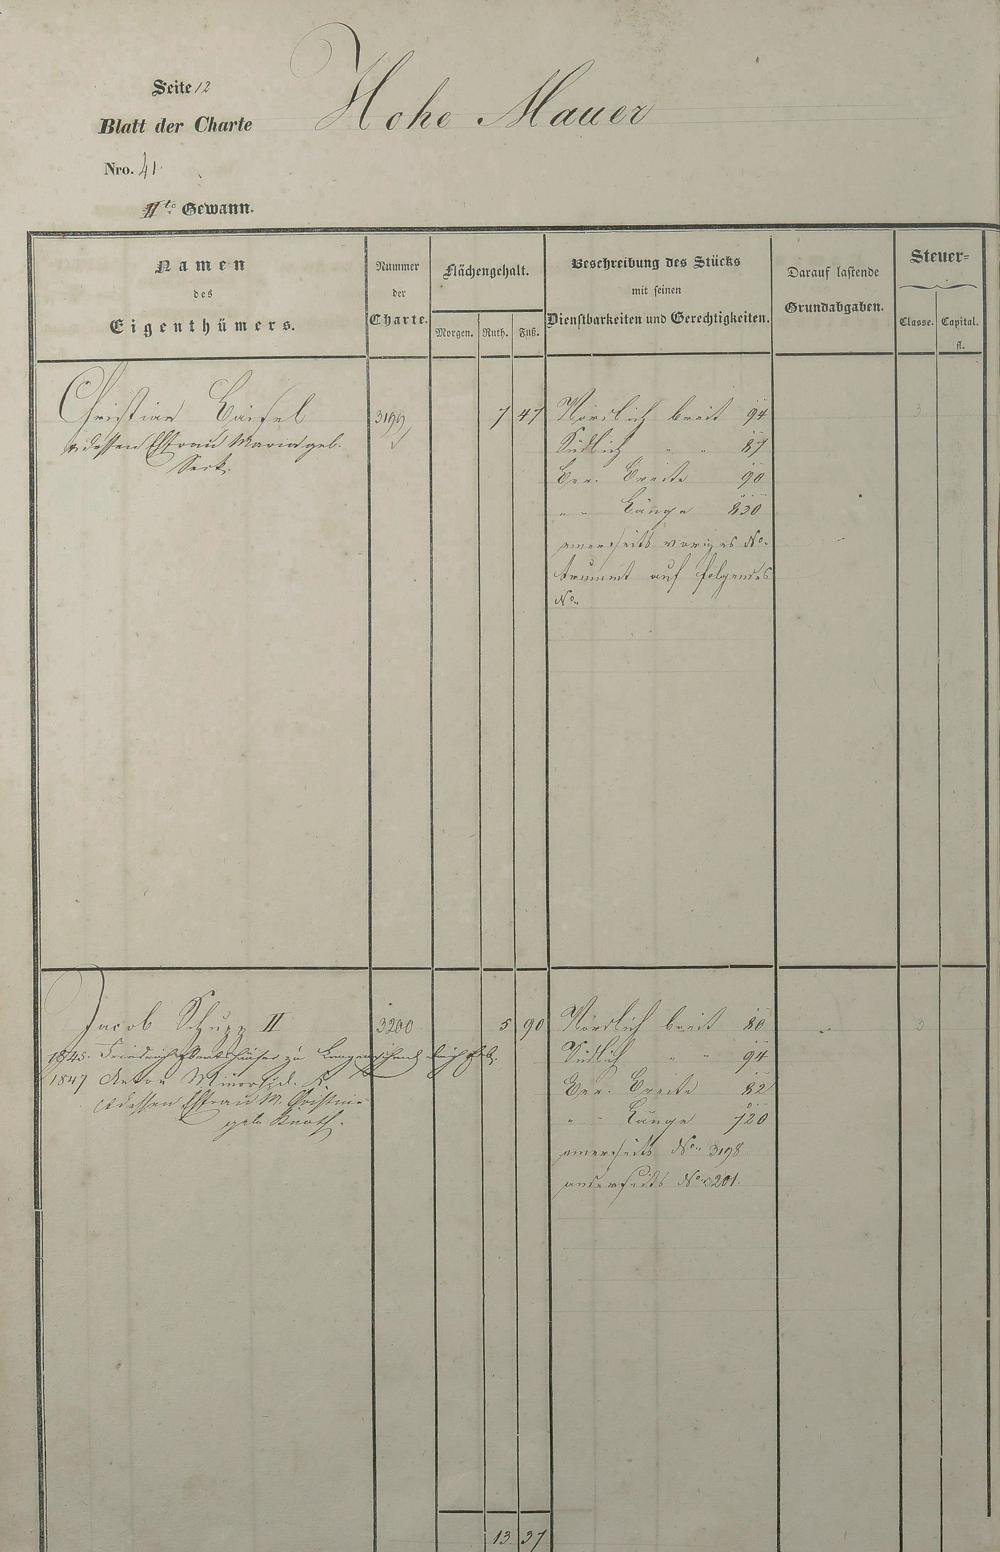 Seite 12
Hohe Mauer
Blatt der Charte
Nro. 41
IIte Gewann.
Namen
des
Eigenthümers.
Nummer
der
Charte.
Flächengehalt.
Morgen. Ruth. Fuß.
Beschreibung des Stücks
mit seinen
Dienstbarkeiten und Gerechtigkeiten.
Darauf lastende
Grundabgaben.
Steuer=
Classe. Capital.
fl.
Christian 3199 7 47 Nördlich breit 94 3
dessen Ehfrau Maria geb. Südlich " " 87
Ver. Breite 90
" " Länge 830
einerseits voriges No.
trummt auf folgendes
No.
Jacob Schupp II 3200 5 90 Nördlich breit 80 3
1845. Friedrich zu
Südlich " " 94
1847 Anton
Ver. Breite 82
dessen Ehfrau M.
" " Länge 720
geb. Knoth.
einerseits No. 3198
anderseits No. 3201.
13 37